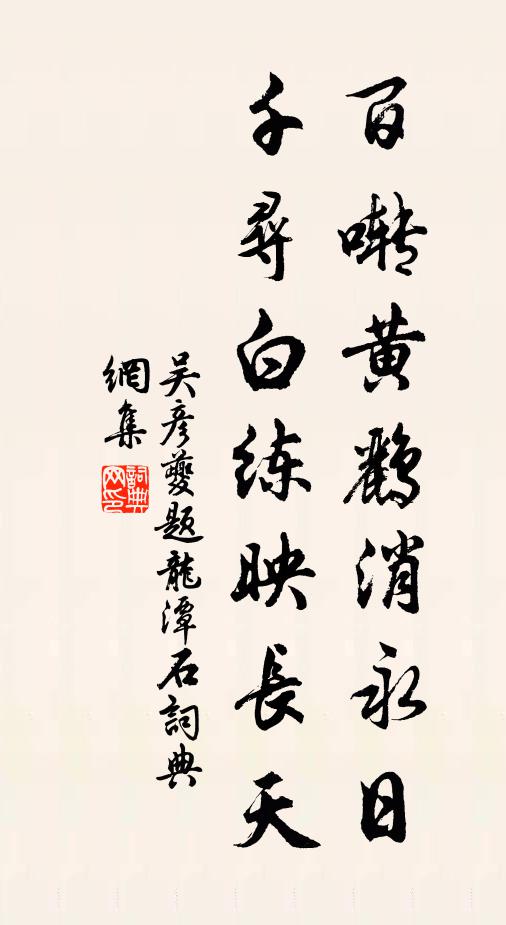 百啭黄鹂消永日
千尋白练映長天
吴彦夔题龍潭石詞典
網集
詞典
网印